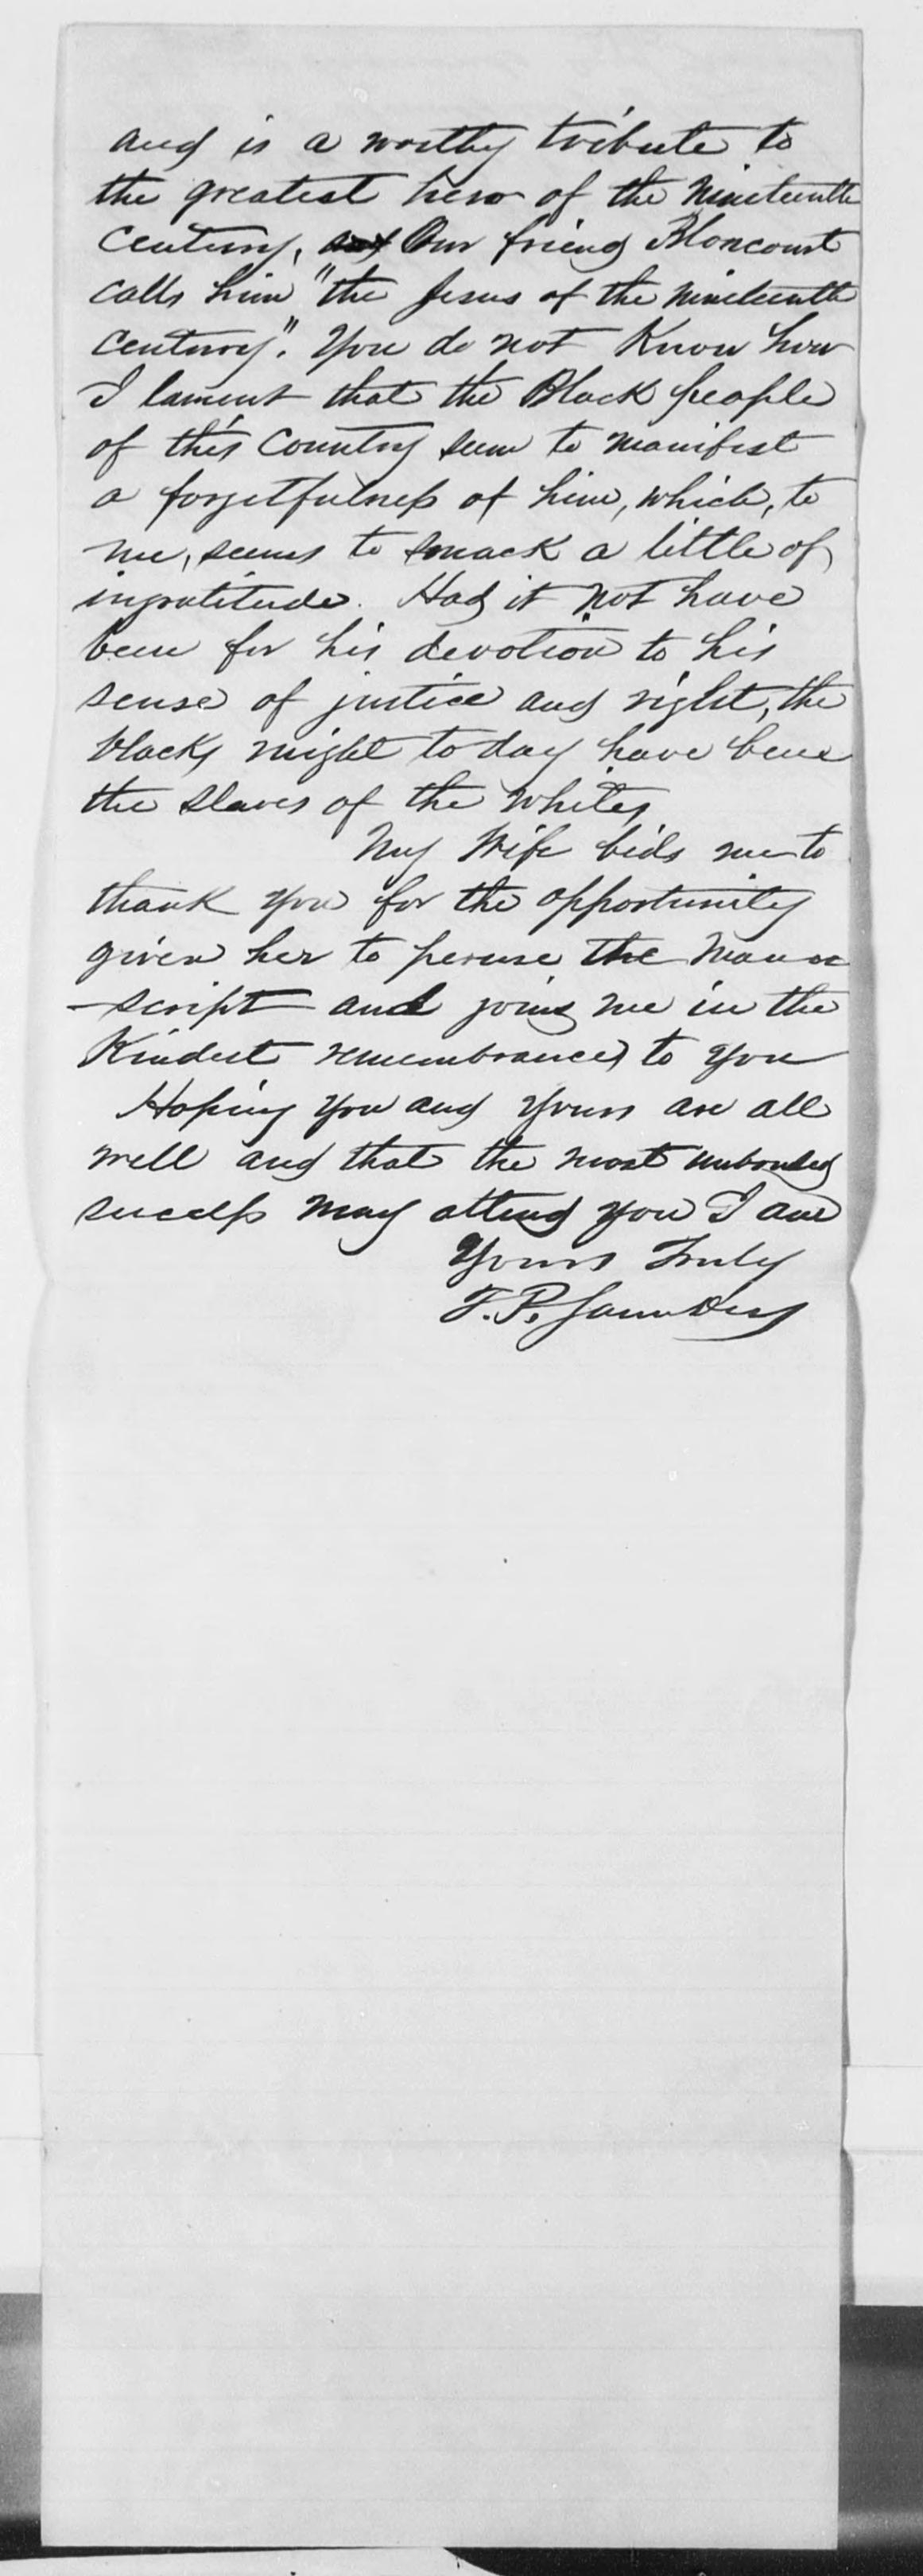 and is a worthy tribute to
the greatest hero of the Nineteenth
Century, and Our friend Bloncourt
calls him "the Jesus of the Nineteenth
Century". You do not Know how
I lament that the Black people
of this Country seem to manifest
a forgetfulness of him, which, to
me, seems to smack a little of
ingratitude. Had it not have
been for his devotion to his
sense of justice and right, the
blacks might to day have been
the slaves of the whites
My Wife bids me to
thank you for the opportunity
given her to peruse the Manu
-script and joins me in the
Kindest remembrances to you
Hoping you and yours are all
well and that the most unbounded
success may attend you I am
Yours Truly
T. P. Saunders